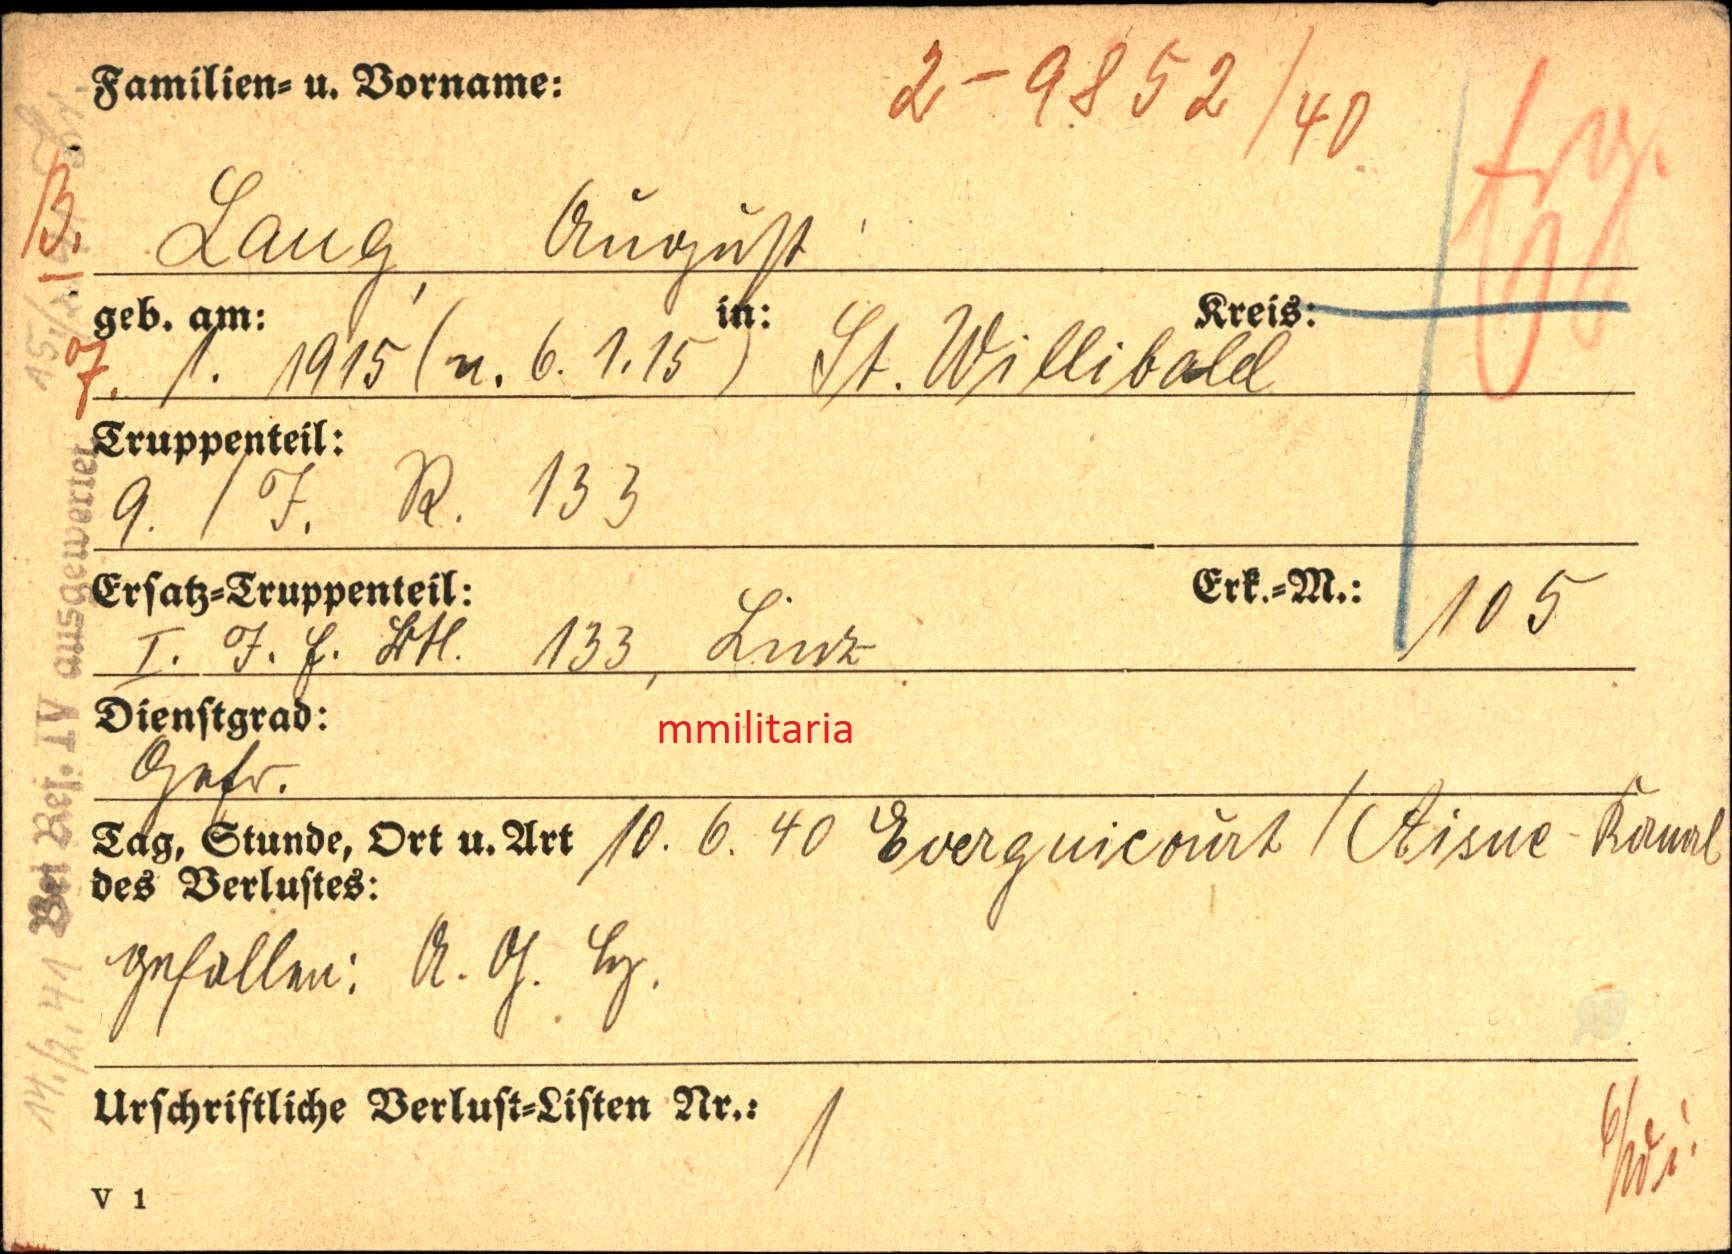 Familien- u. Vorname:
2-9852/40
Lang, August
geb. am: in: Kreis:
7. 1. 1915 (n. 6. 1. 15) St. Willibald
Truppenteil:
9. / J. R. 133
Ersatz-Truppenteil: Erk.-M.: 105
I. J. E. Btl. 133, Linz
Dienstgrad:
mmilitaria
Gefr.
Tag, Stunde, Ort u. Art 10. 6. 40 Evergnicourt / Aisne-Kanal
des Verlustes:
gefallen: A. G.
Urschriftliche Verlust-Listen Nr.: 1
V 1
14./2. 41 Bei Ref. IV ausgewertet
B.